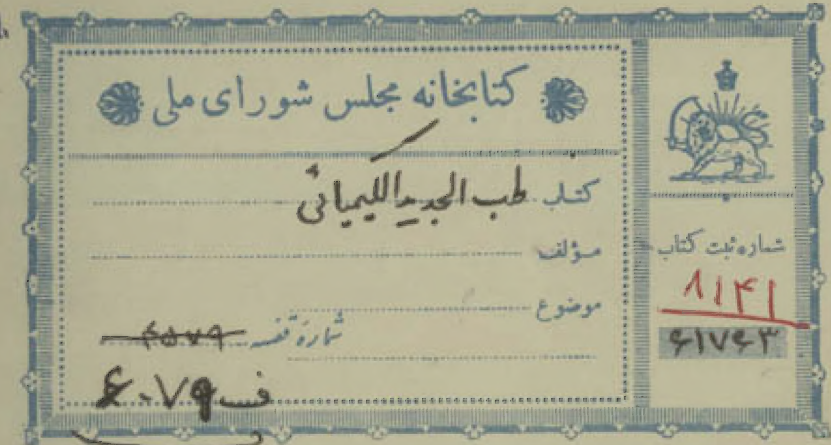 کتابخانه مجلس شورای ملی
کتاب طب الجدید الکیمیائی
مؤلف
موضوع
شماره قفسه ۴۵۷۹
ف ۶۰۷۹
شماره ثبت کتاب
۸۱۴۱
۶۱۷۶۳